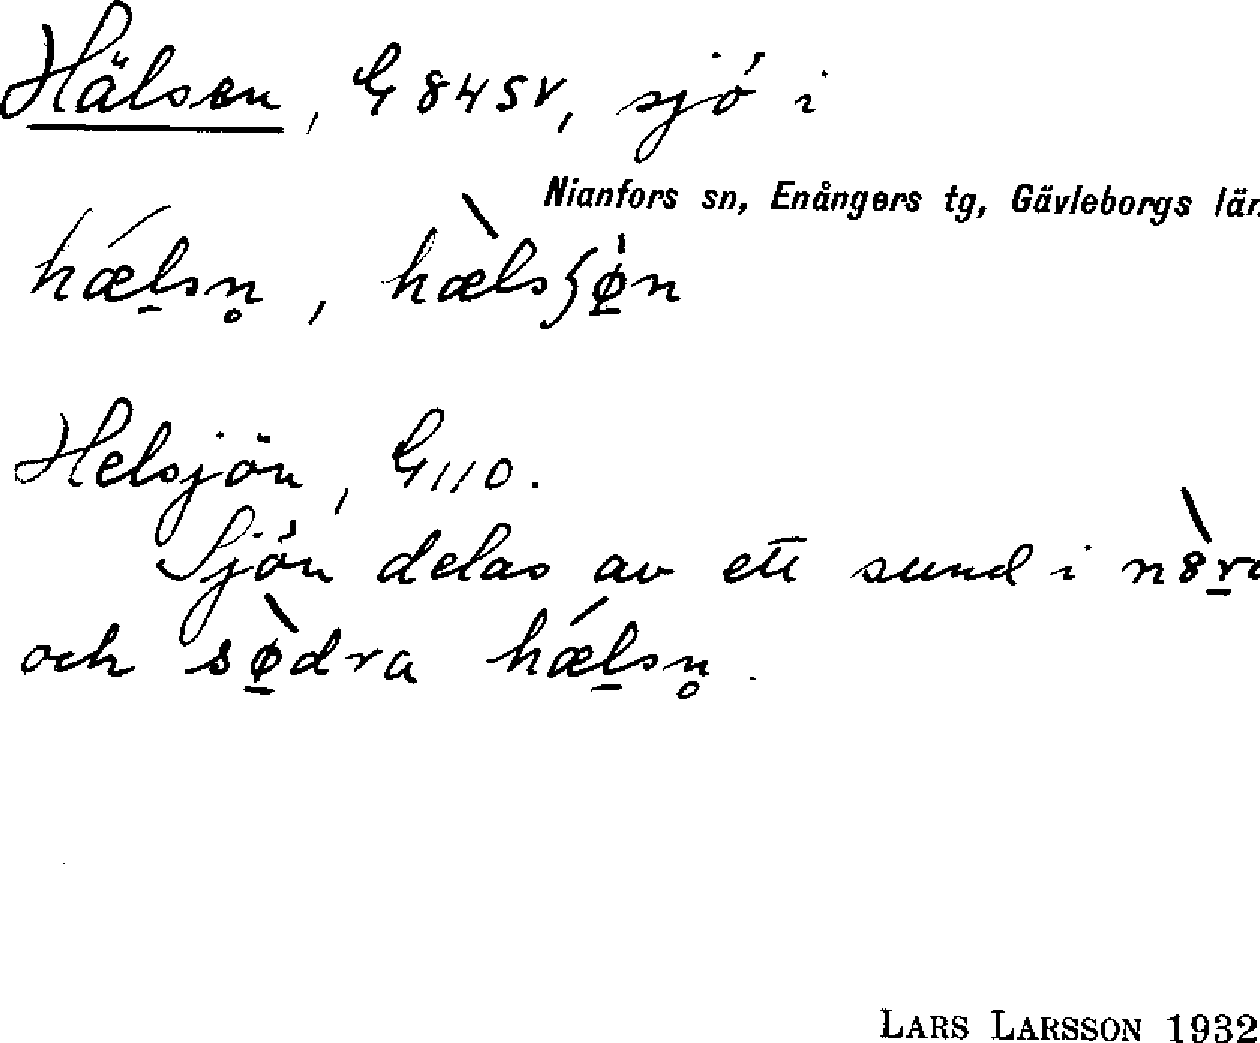 Hälsen, G 84 SV, sjö i
Nianfors sn, Enångers tg, Gävleborgs län
hǽl̲sn̥, hæ̀lsʃø̲̍n
Helsjön, G 110.
Sjön delas av ett sund i
och sø̲̀dra hǽl̲sn̥.
LARS LARSSON 1932